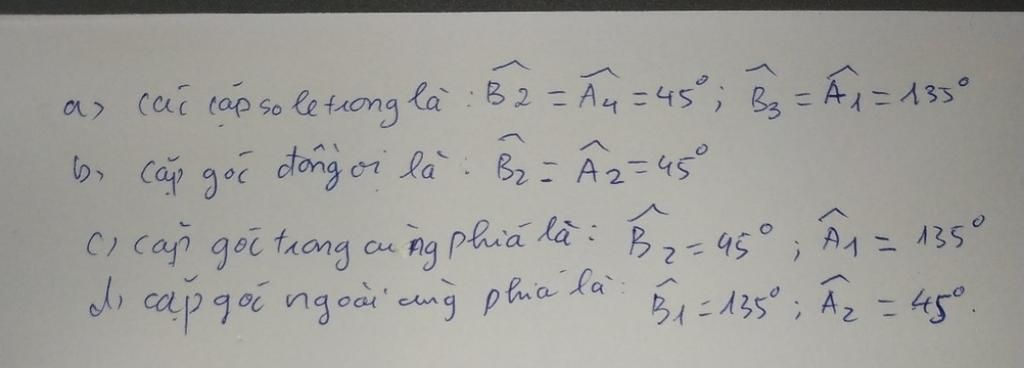 a) các cặp so le trong là: B̂2 = Â4 = 45°; B̂3 = Â1 = 135°
b, cặp góc đồng vị là: B̂2 = Â2 = 45°
c) cặp góc trong cùng phía là: B̂2 = 45°; Â1 = 135°
d, cặp góc ngoài cùng phía là: B̂1 = 135°; Â2 = 45°.